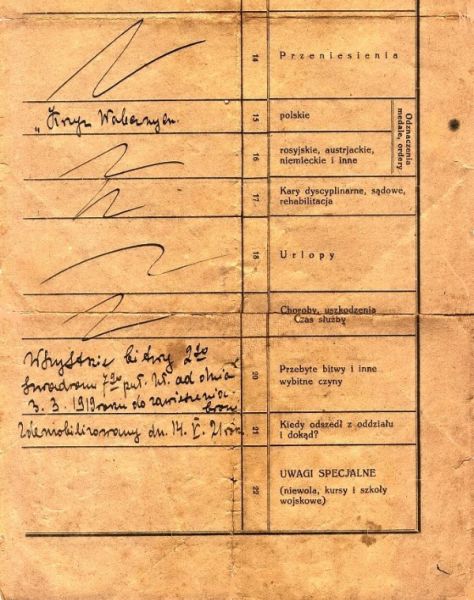 14 Przeniesienia
„Krzyż Walecznych.
15 polskie
Odznaczenia
medale, ordery
16 rosyjskie, austrjackie,
niemieckie i inne
17 Kary dyscyplinarne, sądowe,
rehabilitacja
18 Urlopy
Choroby, uszkodzenia
Czas służby
Wszystkie bitwy 2go
szwadronu 7go puł. Uł. od dnia
3. 3. 1919 roku do zawieszenia
broni
20 Przebyte bitwy i inne
wybitne czyny
Zdemobilizowany dn. 14. V. 21 rok
21 Kiedy odszedł z oddziału
i dokąd?
22 UWAGI SPECJALNE
(niewola, kursy i szkoły
wojskowe)